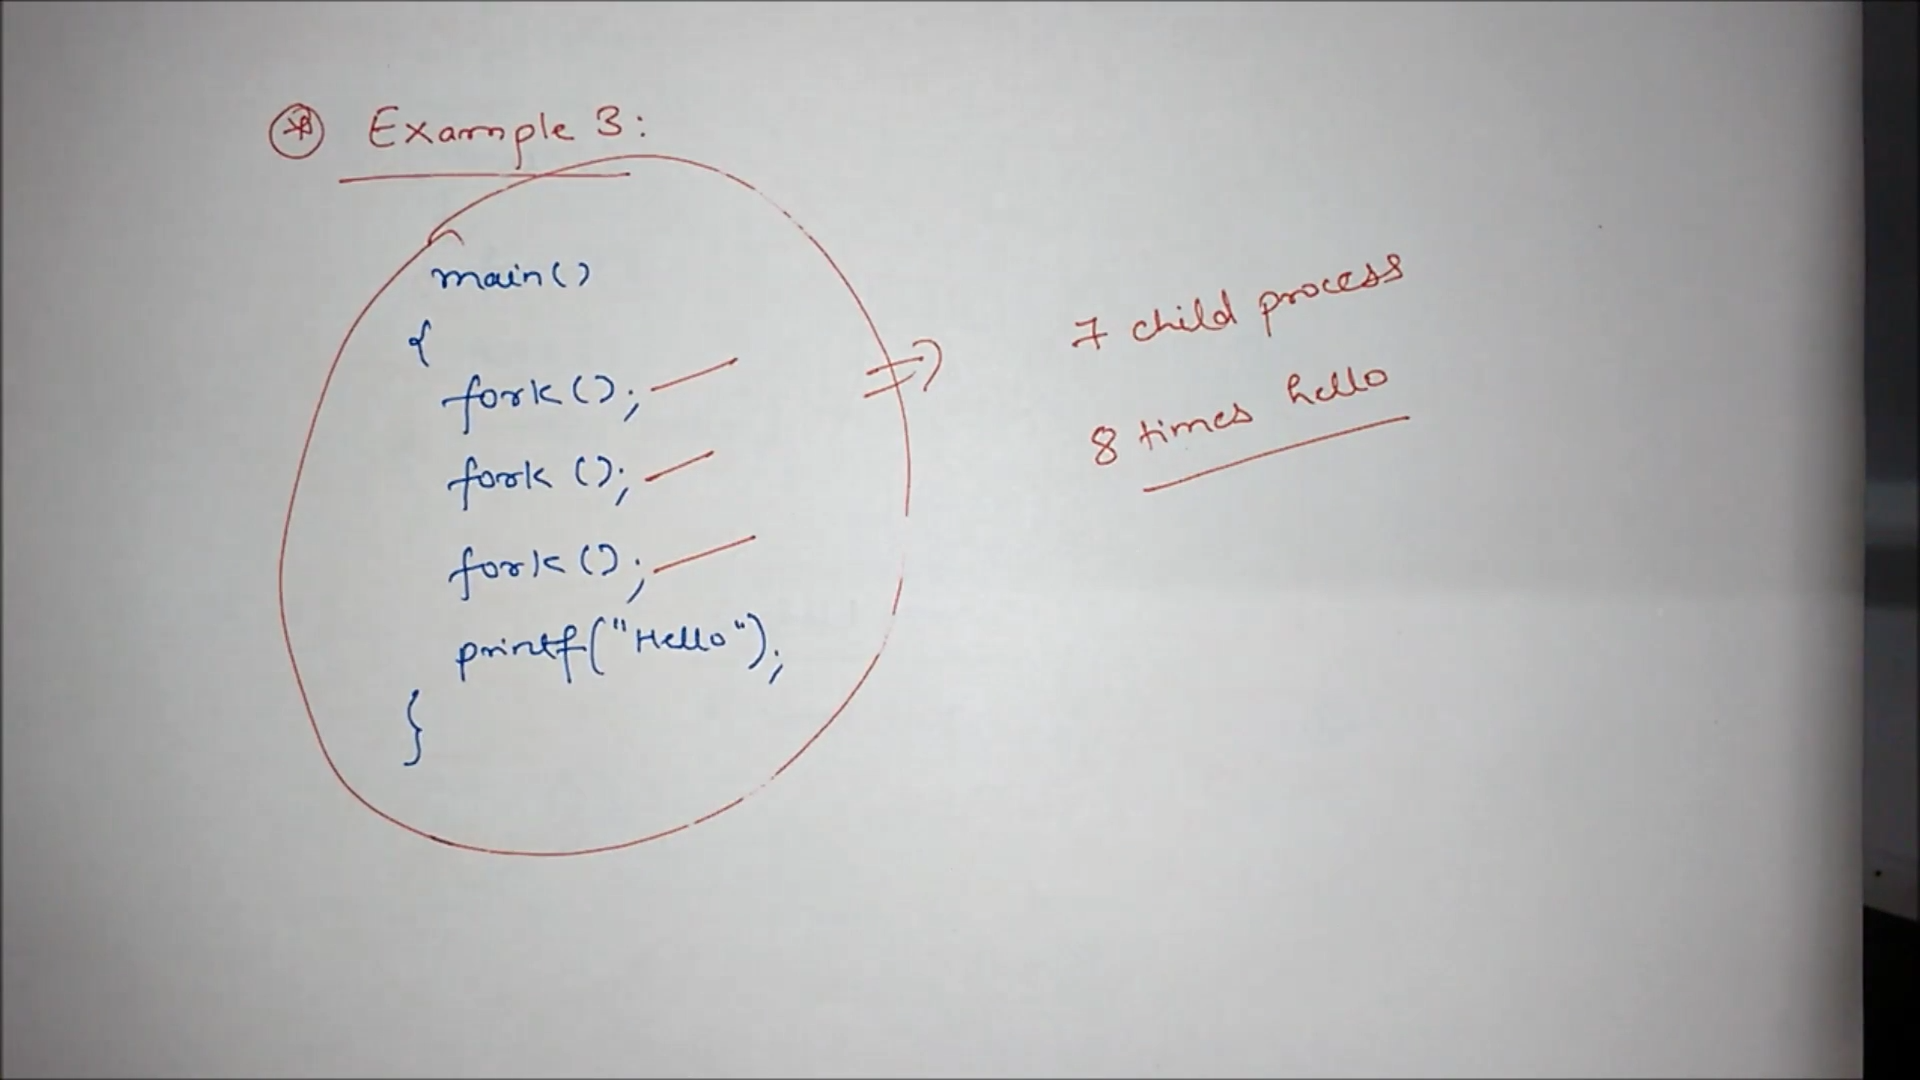 * Example 3:
main()
{
fork();
fork();
fork();
printf("Hello");
}
⇒
7 child process
8 times hello